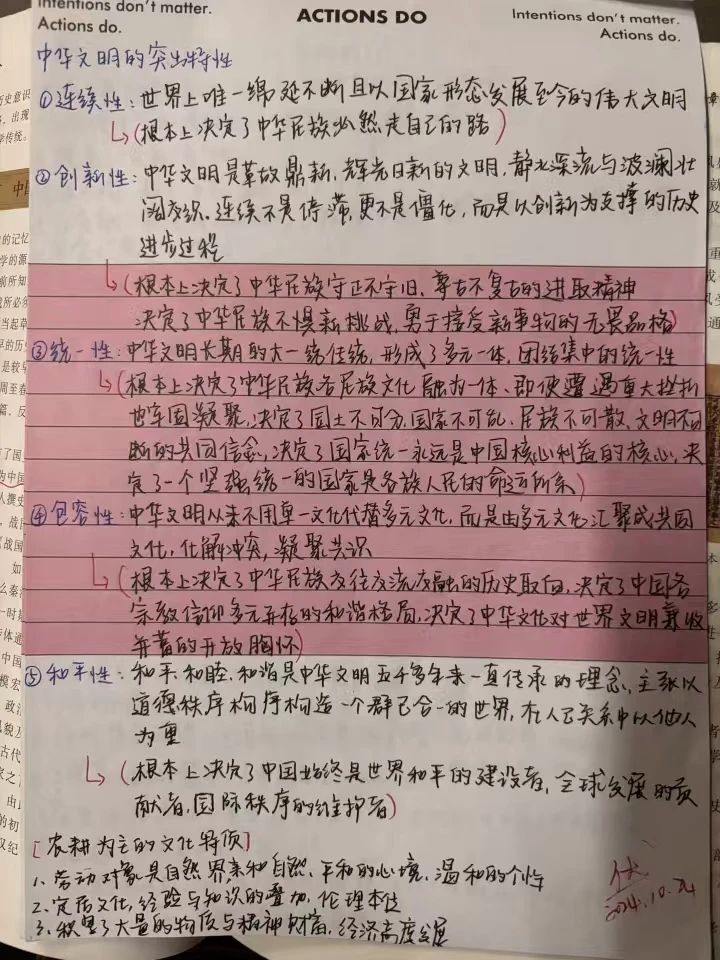 Intentions don't matter.
Actions do.
ACTIONS DO
Intentions don't matter.
Actions do.
中华文明的突出特性
①连续性：世界上唯一绵延不断且以国家形态发展至今的伟大文明
（根本上决定了中华民族必然走自己的路）
②创新性：中华文明是革故鼎新、辉光日新的文明，静水深流与波澜壮
阔交织。连续不是停滞，更不是僵化，而是以创新为支撑的历史
进步过程
（根本上决定了中华民族守正不守旧、尊古不复古的进取精神
决定了中华民族不惧新挑战，勇于接受新事物的无畏品格）
③统一性：中华文明长期的大一统传统，形成了多元一体，团结集中的统一性
（根本上决定了中华民族各民族文化融为一体、即使遭遇重大挫折
也牢固凝聚，决定了国土不可分、国家不可乱、民族不可散、文明不可
断的共同信念，决定了国家统一永远是中国核心利益的核心，决
定了一个坚强统一的国家是各族人民的命运所系）
④包容性：中华文明从来不用单一文化代替多元文化，而是由多元文化汇聚成共同
文化，化解冲突，凝聚共识
（根本上决定了中华民族交往交流交融的历史取向，决定了中国各
宗教信仰多元并存的和谐格局，决定了中华文化对世界文明兼收
并蓄的开放胸怀）
⑤和平性：和平、和睦、和谐是中华文明五千多年来一直传承的理念，主张以
道德秩序构序构造一个群己合一的世界，在人己关系中以他人
为重
（根本上决定了中国始终是世界和平的建设者，全球发展的贡
献者，国际秩序的维护者）
[农耕为主的文化特质]
1、劳动对象是自然界亲和自然、平和的心境、温和的个性
2、定居文化，经验与知识的叠加，伦理本位
3、积累了大量的物质与精神财富，经济高度发展
2024.10.24